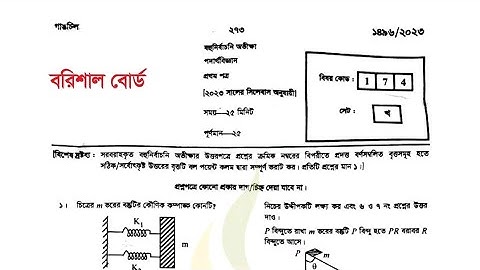 গাঙচিল ২৭৩ ১৪৯৬/২০২৩
বরিশাল বোর্ড
বহুনির্বাচনি অভীক্ষা
পদার্থবিজ্ঞান
প্রথম পত্র
[২০২৩ সালের সিলেবাস অনুযায়ী]
সময়—২৫ মিনিট
পূর্ণমান—২৫
বিষয় কোড : 1 7 4
সেট : খ
[বিশেষ দ্রষ্টব্য : সরবরাহকৃত বহুনির্বাচনি অভীক্ষার উত্তরপত্রে প্রশ্নের ক্রমিক নম্বরের বিপরীতে প্রদত্ত বর্ণসম্বলিত বৃত্তসমূহ হতে
সঠিক/সর্বোৎকৃষ্ট উত্তরের বৃত্তটি বল পয়েন্ট কলম দ্বারা সম্পূর্ণ ভরাট কর। প্রতিটি প্রশ্নের মান ১।]
প্রশ্নপত্রে কোনো প্রকার দাগ/চিহ্ন দেয়া যাবে না।
১। চিত্রের m ভরের বস্তুটির কৌণিক কম্পাঙ্ক কোনটি?
K₁
m
নিচের উদ্দীপকটি লক্ষ্য কর এবং ৬ ও ৭ নং প্রশ্নের উত্তর
দাও।
P বিন্দুতে রাখা m ভরের বস্তুটি P বিন্দু হতে PR বরাবর R
বিন্দুতে আসে।
P
θ